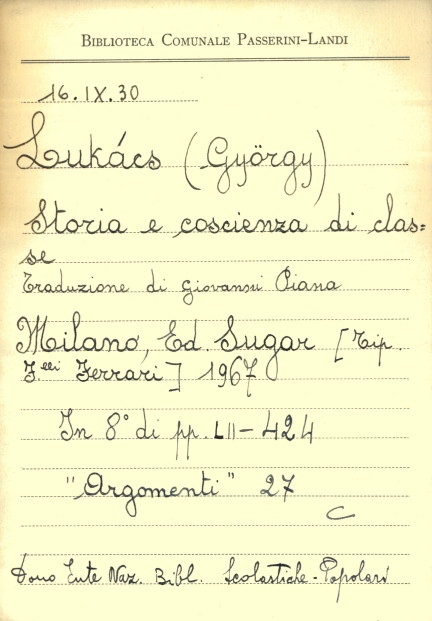 BIBLIOTECA COMUNALE PASSERINI-LANDI
16.IX.30
Lukács (György)
Storia e coscienza di clas=
se
Traduzione di Giovanni Piana
Milano, Ed. Sugar [Tip.
F.lli Ferrari] 1967
In 8° di pp. LII-424
"Argomenti" 27
C
Dono Ente Naz. Bibl. Scolastiche-Popolari